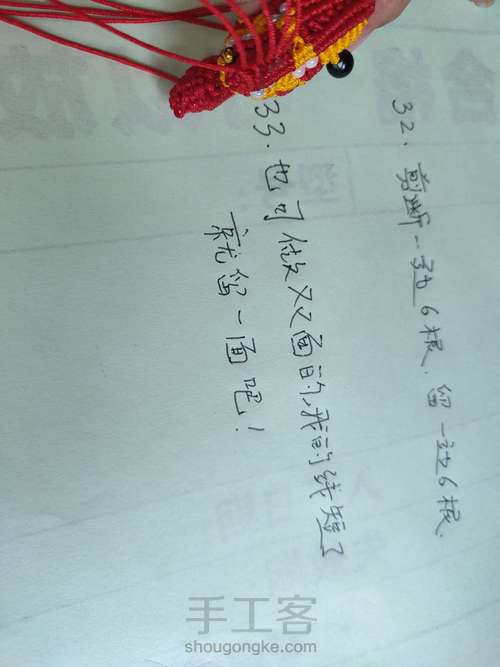 32. 剪断一边6根.留一边6根.
33.也可做双面的,我的线短了
就留一面吧!
手工客
shougongke.com